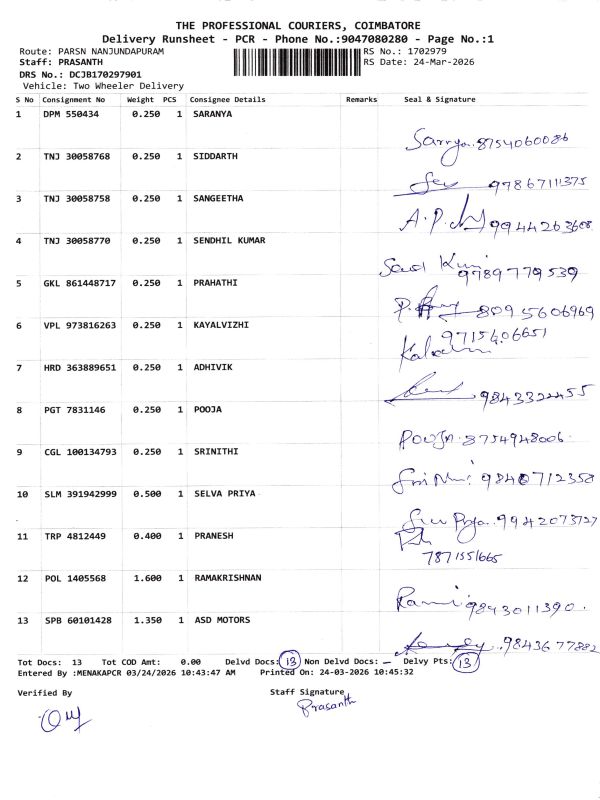 THE PROFESSIONAL COURIERS, COIMBATORE
Delivery Runsheet - PCR - Phone No.:9047080280 - Page No.:1
Route: PARSN NANJUNDAPURAM RS No.: 1702979
Staff: PRASANTH RS Date: 24-Mar-2026
DRS No.: DCJB170297901
Vehicle: Two Wheeler Delivery
S No Consignment No Weight PCS Consignee Details Remarks Seal & Signature
1 DPM 550434 0.250 1 SARANYA
8754060086
2 TNJ 30058768 0.250 1 SIDDARTH
9786711375
3 TNJ 30058758 0.250 1 SANGEETHA
9944263608
4 TNJ 30058770 0.250 1 SENDHIL KUMAR
9789779539
5 GKL 861448717 0.250 1 PRAHATHI
8095606969
6 VPL 973816263 0.250 1 KAYALVIZHI
9715406651
7 HRD 363889651 0.250 1 ADHIVIK
9843322455
8 PGT 7831146 0.250 1 POOJA
POOJA. 8754948006.
9 CGL 100134793 0.250 1 SRINITHI
9840712358
10 SLM 391942999 0.500 1 SELVA PRIYA
9942073727
11 TRP 4812449 0.400 1 PRANESH
7871551665
12 POL 1405568 1.600 1 RAMAKRISHNAN
9843011390.
13 SPB 60101428 1.350 1 ASD MOTORS
9843677882
Tot Docs: 13 Tot COD Amt: 0.00 Delvd Docs: 13 Non Delvd Docs: - Delvy Pts: 13
Entered By :MENAKAPCR 03/24/2026 10:43:47 AM Printed On: 24-03-2026 10:45:32
Verified By Staff Signature
Prasanth